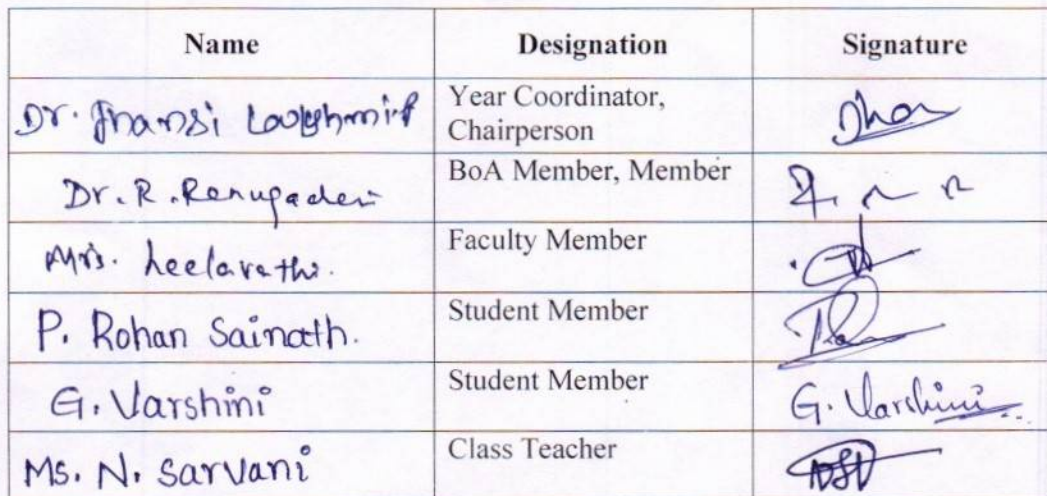 Name Designation Signature
Dr. Jhansi Lakshmi P Year Coordinator,
Chairperson
Dr. R. Renugadevi BoA Member, Member
Mrs. Leelavathi. Faculty Member
P. Rohan Sainath. Student Member
G. Varshini Student Member G. Varshini
Ms. N. Sarvani Class Teacher